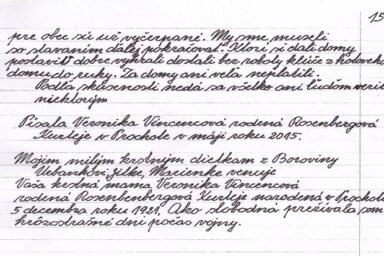 15
pre obec sú už vyčerpané. My sme museli
so stavaním ďalej pokračovať. Ktorí si dali domy
postaviť dobre vyhrali dostali bez roboty kľúče z hotového
domu do ruky. Za domy ani veľa neplatili.
Podľa skúseností nedá sa všetko ani ľuďom veriť
niektorým
Písala Veronika Vincencová rodená Rosenbergová
Kurleje v Prochote v máji roku 2015.
Mojim milým krstným dietkam z Boroviny
Urbankovi Jilke, Marienke venuje
Vaša krstná mama Veronika Vincencová
rodená Rosenbenbergová Kurleje narodená v Prochote
5 decembra roku 1921. Ako slobodná prežívala som
hrôzostrašné dni počas vojny.